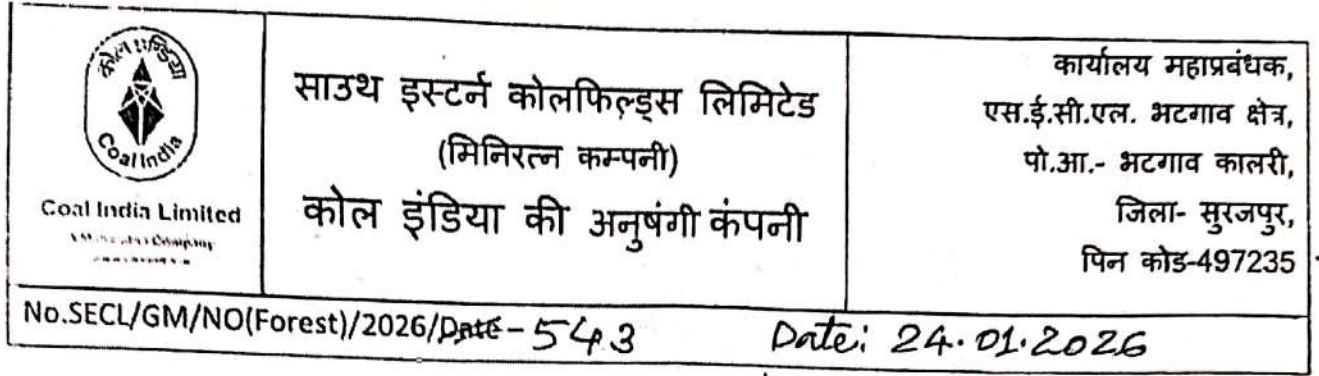 कोल इण्डिया
Coal India
Coal India Limited
साउथ इस्टर्न कोलफिल्ड्स लिमिटेड
(मिनिरत्न कम्पनी)
कोल इंडिया की अनुषंगी कंपनी
कार्यालय महाप्रबंधक,
एस.ई.सी.एल. भटगाव क्षेत्र,
पो.आ.- भटगाव कालरी,
जिला- सुरजपुर,
पिन कोड-497235
No.SECL/GM/NO(Forest)/2026/Date-543 Date: 24.01.2026